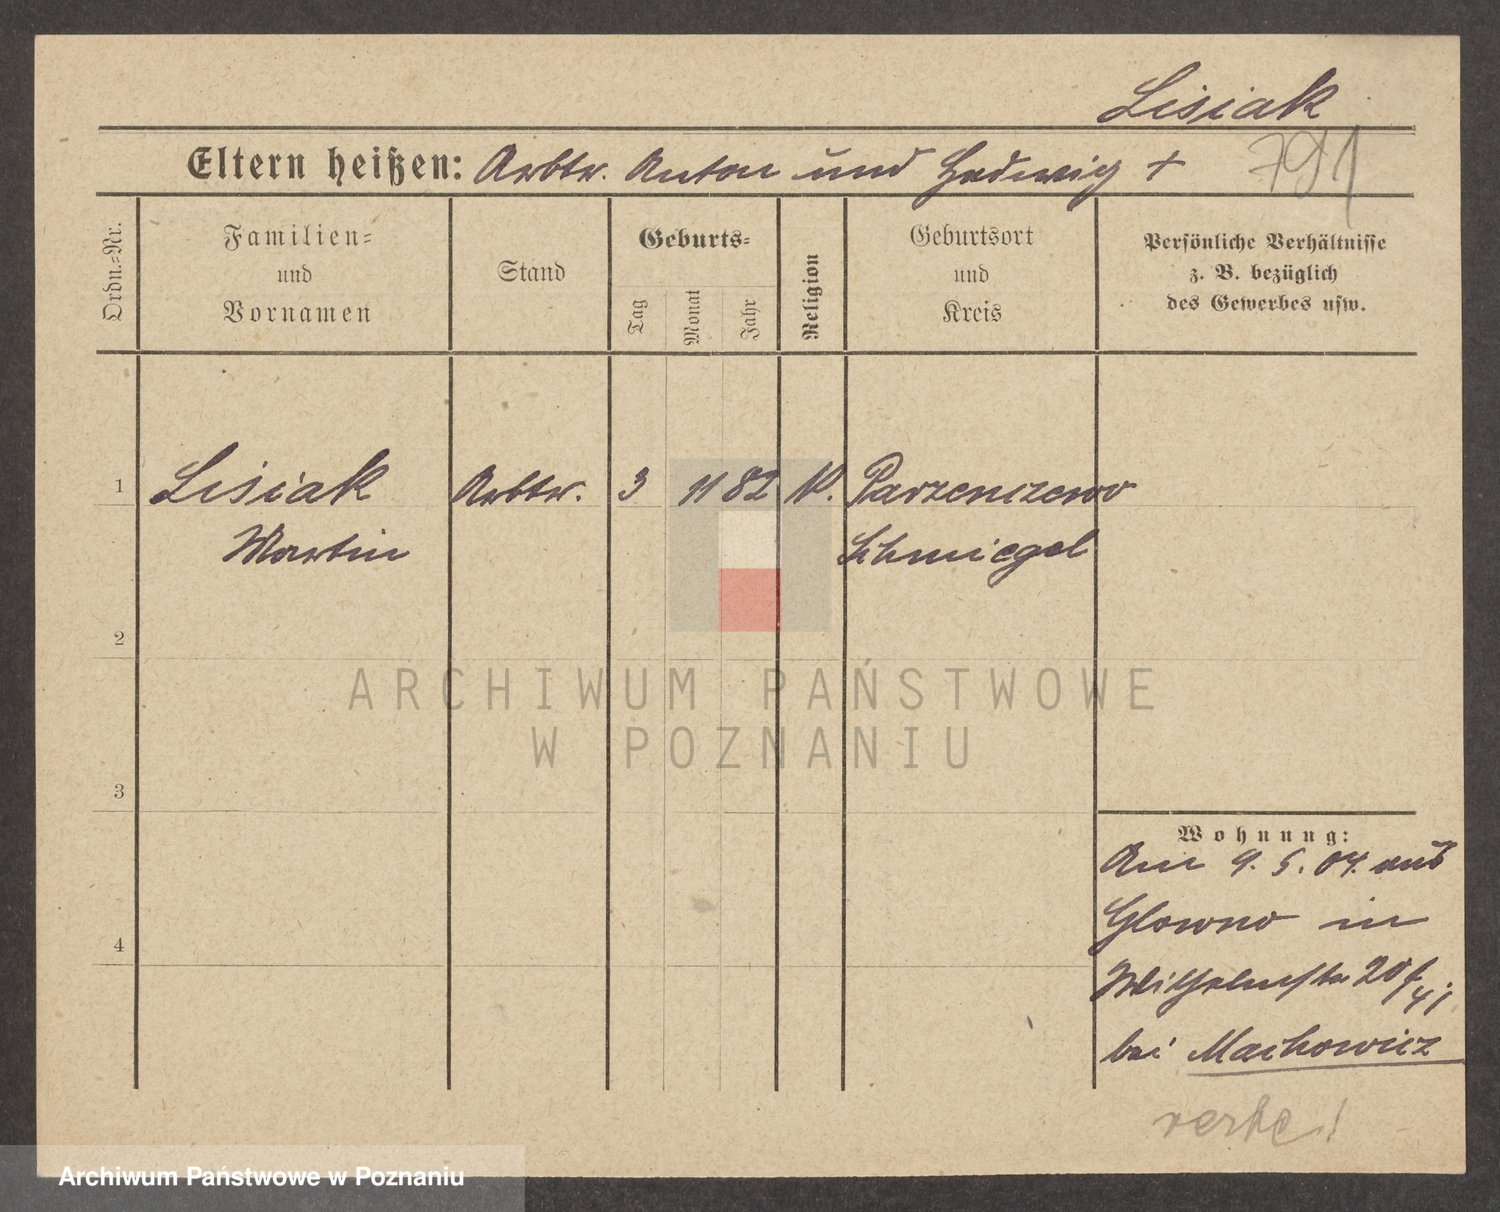 Lisiak
791
Eltern heißen: Arbtr. Anton und Hedwig +
Ordn.-Nr.
Familien-
und
Vornamen
Stand
Geburts-
Tag
Monat
Jahr
Religion
Geburtsort
und
Kreis
Persönliche Verhältnisse
z. B. bezüglich
des Gewerbes usw.
1 Lisiak Arbtr. 3 11 82 k. Parzenczewo
Martin Schmiegel
2
3
4
ARCHIWUM PAŃSTWOWE
W POZNANIU
Wohnung:
Am 9. 5. 04. aus
Glowno in
Wilhelmstr 20
bei Machowicz
Archiwum Państwowe w Poznaniu